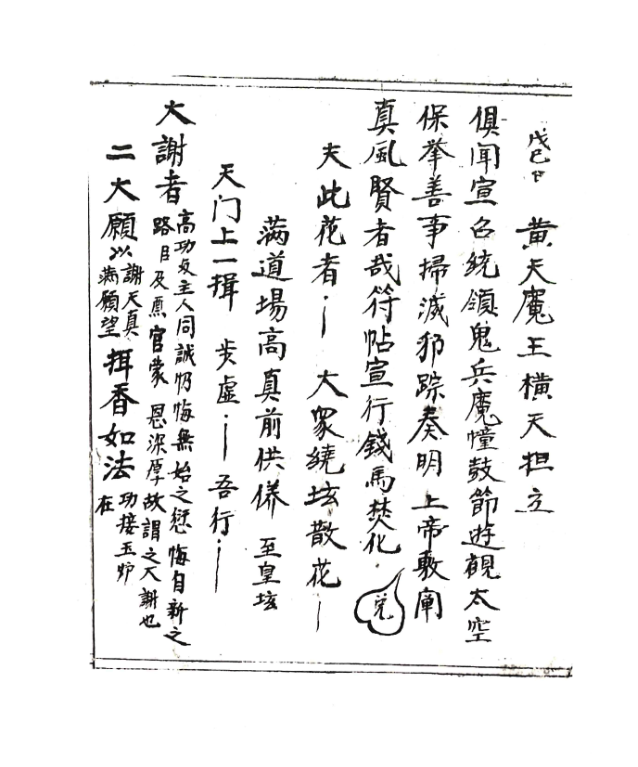 戊己日 黄天魔王橫天担力
俱聞宣召統領鬼兵魔幢鼓節遊観太空
保举善事掃滅邪踪奏明上帝敷闡
真風賢者哉符帖宣行錢馬焚化
夫此花者 大衆繞坛散花
满道場高真前供養 至皇坛
天门上一揖 步虚 吾行
大謝者 高功及主人同誠忏悔無始之愆悔自新之
路目及 官蒙 恩深厚故謂之大謝也
二大願 以謝天真
满願望 揖香如法 功接玉炉
在